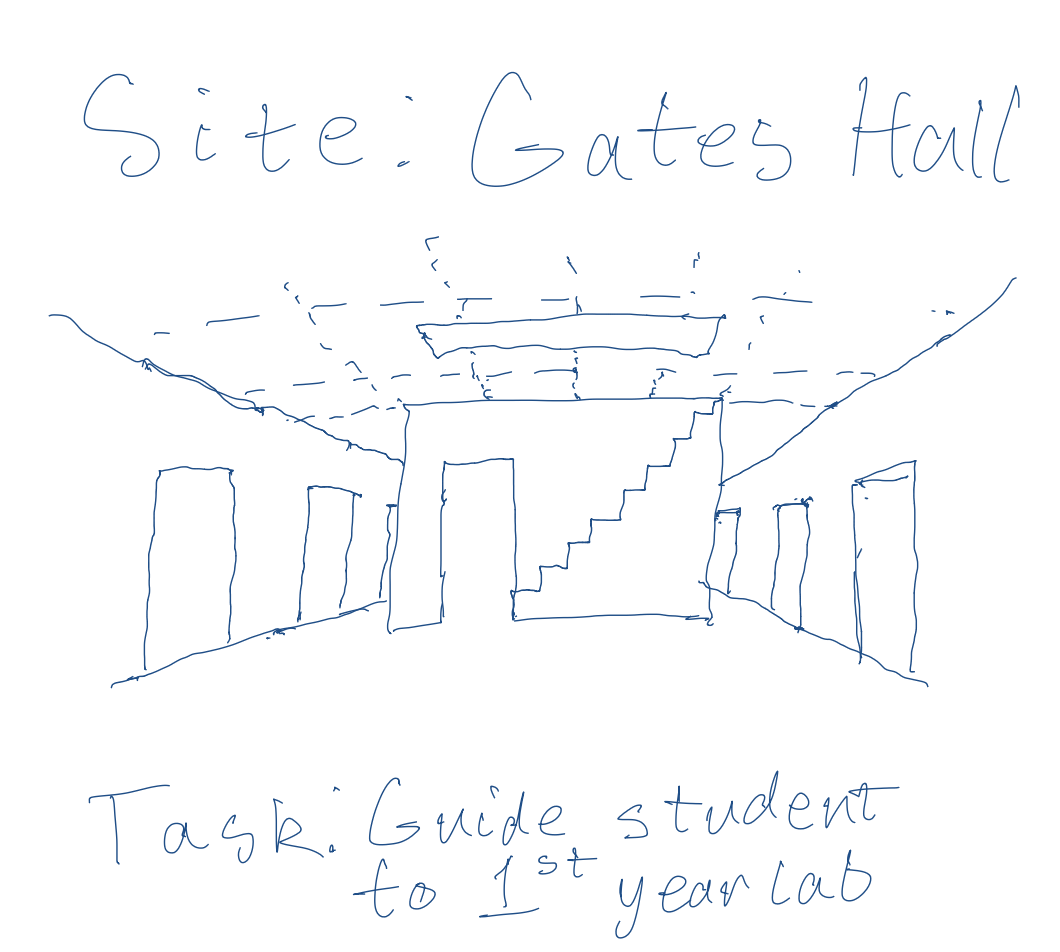 Site: Gates Hall
Task: Guide student
to 1st year lab